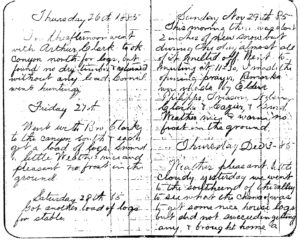 Thursday 26th 1885
In the afternoon went
with Arthur Clark to ok
canyon north for logs, but
found no dry timber returned
without any load, Daniel
went hunting
Friday 27th
Went with Bro. Clark
to the canyon south & each
got a load of logs.
a little West, nice and
pleasant no frost in the
ground
Saturday 28th 85
Got another load of logs
for stable
Sunday Nov 29th 85
This morning there was about
2 inches of new snow but
during the day almost all
of it melted off. Went to
meeting at 11 a.m. made the
opening prayer, Remarks
were made by Elders
Phillips,
Clark &
Weather nice & warm no
frost in the ground.
Thursday Dec 3-85
Weather pleasant but
cloudy yesterday we went
to the south end of the valley
to see what the chance was
to get some nice house logs
but did not succeed in getting
any, & brought home a